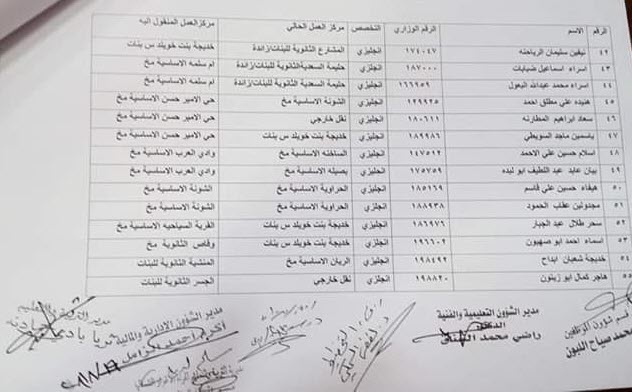 الرقم الاسم الرقم الوزاري التخصص مركز العمل الحالي مركز العمل المنقول اليه
٤٢ نيفين سليمان الرياحنه ١٧٤٠٤٧ انجليزي المشارع الثانوية للبنات/زائدة خديجة بنت خويلد س بنات
٤٣ اسراء اسماعيل ضبابات ١٨٧٠٠٠ انجلزي حليمة السعديةالثانوية للبنات/زائدة ام سلمه الاساسية مخ
٤٤ اسراء محمد عبدالله البعول ١٦٦٩٥٩ انجليزي حليمة السعديةالثانوية للبنات/زائدة ام سلمه الاساسية مخ
٤٥ هنيده علي مطلق احمد ١٢٩٩٢٥ انجليزي الشونة الاساسية مخ حي الامير حسن الاساسية مخ
٤٦ سعاد ابراهيم المطارنه ١٨٠٦١١ انجليزي نقل خارجي حي الامير حسن الاساسية مخ
٤٧ ياسمين ماجد السويطي ١٨٩٩٨٦ انجليزي خديجة بنت خويلد س بنات حي الامير حسن الاساسية مخ
٤٨ اسلام حسين علي الاحمد ١٤٧٥١٢ انجلزي الساخنه الاساسية مخ وادي العرب الاساسية مخ
٤٩ بيان عايد عبد اللطيف ابو لبده ١٧٥٧٥٩ انجليزي بصيله الاساسية مخ وادي العرب الاساسية مخ
٥٠ هيفاء حسين علي قاسم ١٨٥١٦٩ انجليزي الحراوية الاساسية مخ الشونة الاساسية مخ
٥١ مجدولين عقاب الحمود ١٨٨٩٣٨ انجلزي الحراوية الاساسية مخ الشونة الاساسية مخ
٥٢ سحر طلال عبد الجبار ١٨٦٩٧٦ انجليزي خديجة بنت خويلد س بنات القرية السياحيه الاساسية مخ
٥٣ اسماء احمد ابو صهيون ١٩٦٦٠٢ انجلزي خديجة بنت خويلد س بنات وقاص الثانوية مخ
٥٤ خديجة شعبان ابداح ١٩٨٤٩٢ انجليزي الريان الاساسية مخ المنشية الثانوية للبنات
٥٥ هاجر كمال ابو زيتون ١٩٨٨٢٠ انجلزي نقل خارجي الجسر الثانوية للبنات
مدير الشؤون التعليمية والفنية مدير الشؤون الادارية والمالية
الدكتور
راضي محمد